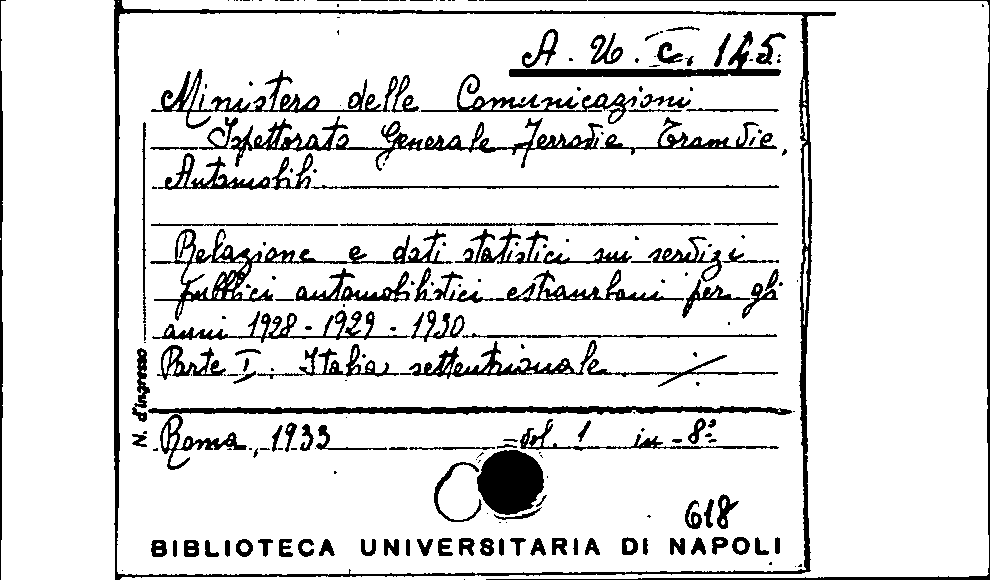 A. U. C. 145
Ministero delle Comunicazioni
Ispettorato Generale Ferrovie, Tramvie,
Automobili.
Relazione e dati statistici sui servizi
pubblici automobilistici estraurbani per gli
anni 1928 - 1929 - 1930.
Parte I. Italia settentrionale.
N. d'ingresso
Roma, 1933 vol. 1 in-8º
618
BIBLIOTECA UNIVERSITARIA DI NAPOLI